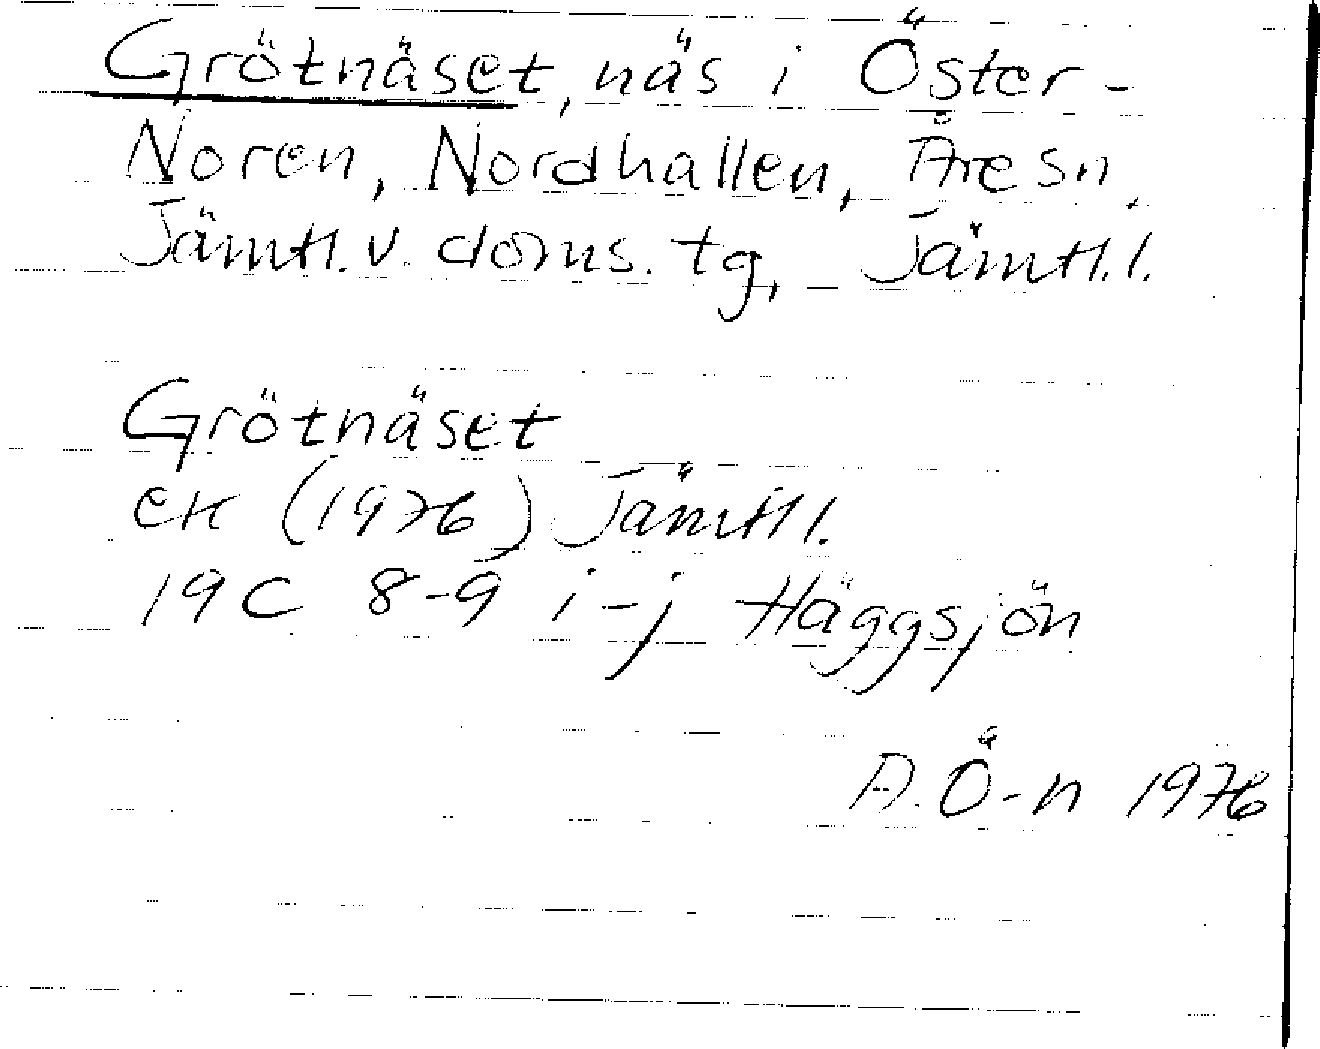 Grötnäset, näs i Öster-
Noren, Nordhallen, Åre sn,
Jämtl. v. doms. tg, Jämtl. l.
Grötnäset
ek (1976) Jämtl l.
19C 8-9 i-j Häggsjön
A. Ö-n 1976